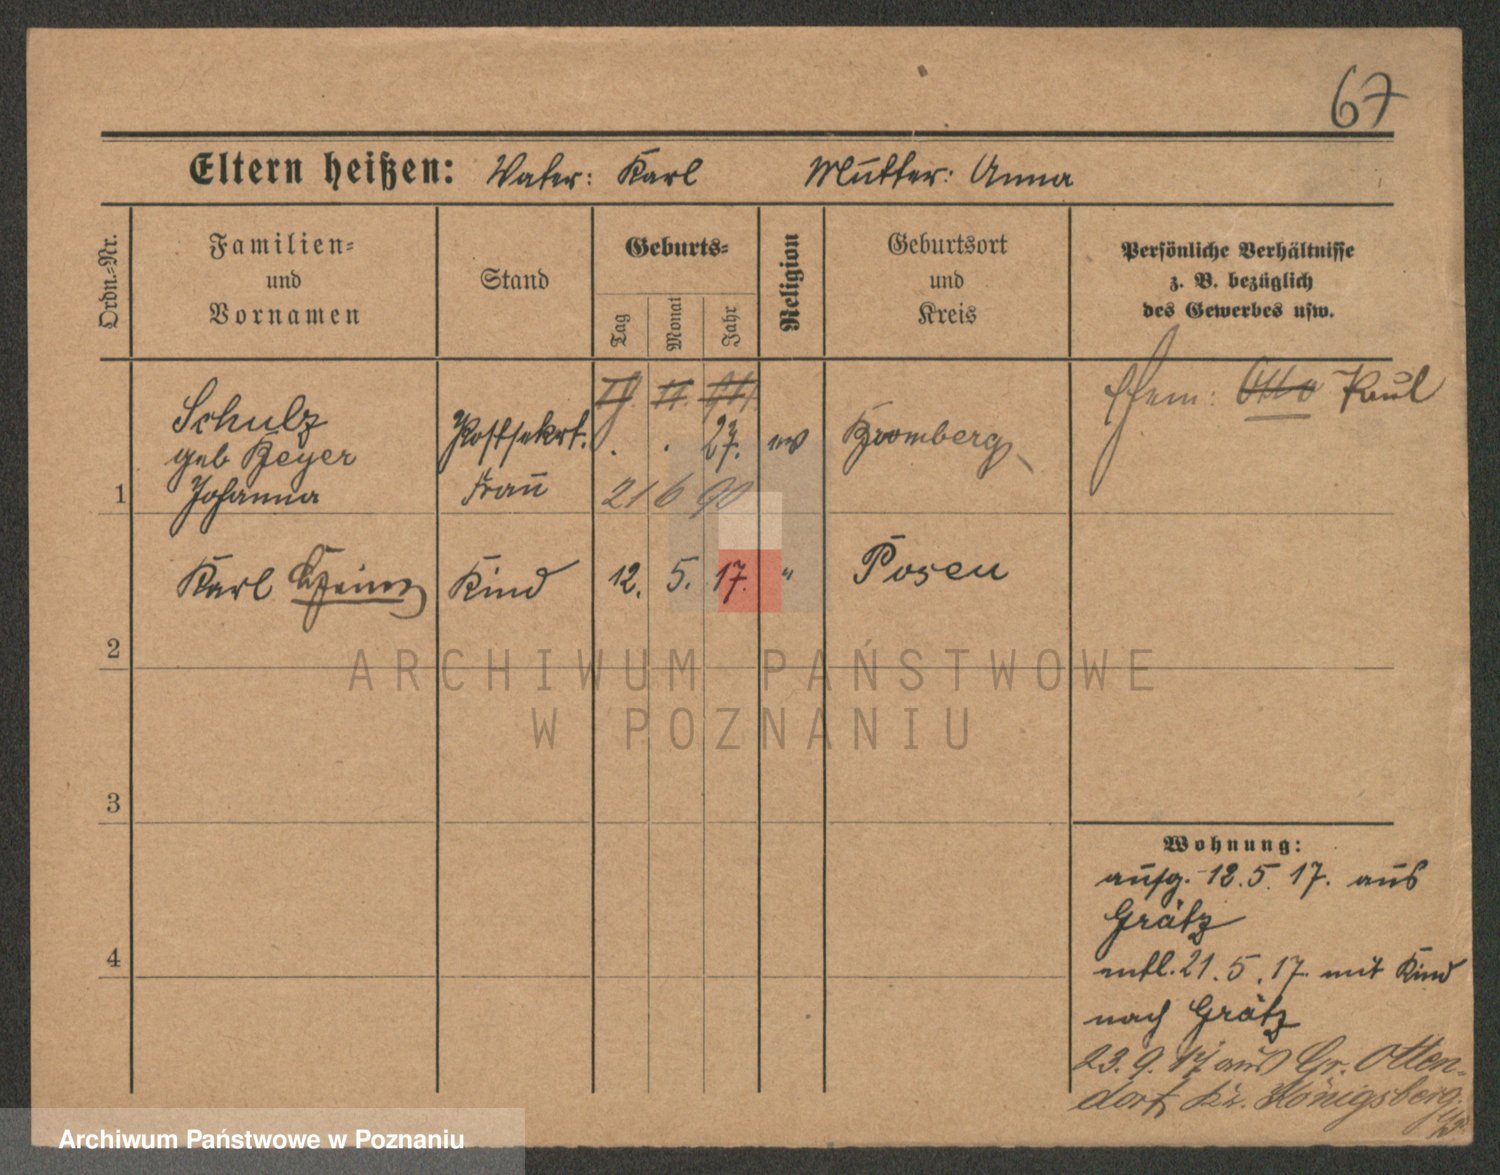 67
Eltern heißen: Vater: Karl Mutter: Anna
Ordn.=Nr.
Familien=
und
Vornamen
Stand
Geburts=
Tag
Monat
Jahr
Religion
Geburtsort
und
Kreis
Persönliche Verhältnisse
z. B. bezüglich
des Gewerbes usw.
Schulz
geb Beyer
Johanna
Postsekrt.
Frau
27.
21 6 90
ev
Bromberg
Ehem: Otto Paul
1
Karl Heinz Kind 12. 5. 17. " Posen
2
ARCHIWUM PAŃSTWOWE
W POZNANIU
3
4
Wohnung:
aufg. 12.5.17. aus
Grätz
entl. 21.5.17. mit Kind
nach Grätz
23.9.17 aus Gr. Otten-
dorf, Kr. Königsberg.
Archiwum Państwowe w Poznaniu